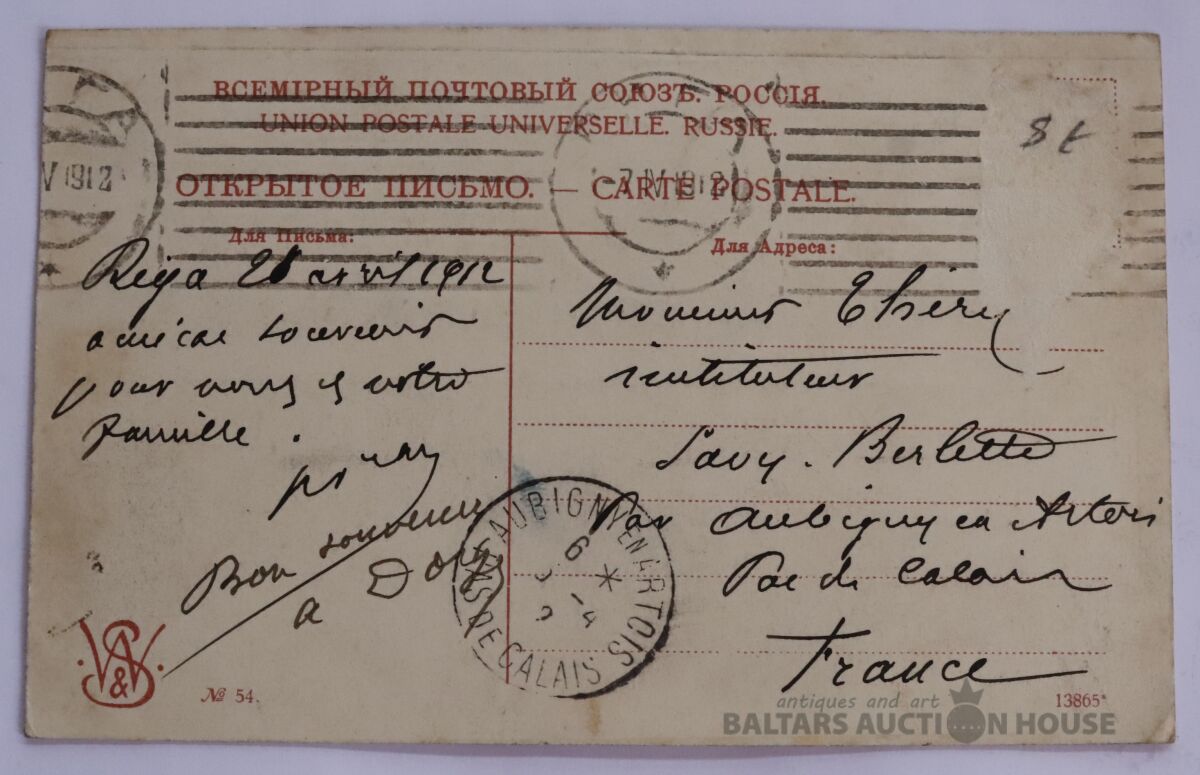 ВСЕМІРНЫЙ ПОЧТОВЫЙ СОЮЗЪ. РОССІЯ.
UNION POSTALE UNIVERSELLE. RUSSIE.
ОТКРЫТОЕ ПИСЬМО. — CARTE POSTALE.
8t
V 1912
7 IV 1912
Для Письма:
Для Адреса:
Riga 2 avril 1912
amical souvenir
pour vous et votre
famille
Bon souvenir
a
Monsieur Théry
instituteur
Savy-Berlette
Par Aubigny en Artois
Pas de Calais
France
AUBIGNY EN ARTOIS
PAS DE CALAIS
6 *
-4
№ 54.
13865*
antiques and art
BALTARS AUCTION HOUSE